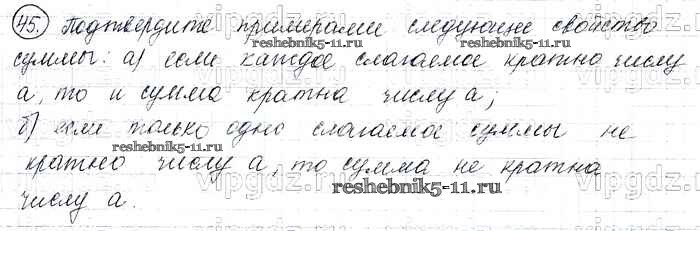 45. Подтвердите примерами следующие свойства
суммы: а) если каждое слагаемое кратно числу
а, то и сумма кратна числу а;
б) если только одно слагаемое суммы не
кратно числу а, то сумма не кратна
числу а.
reshebnik5-11.ru
reshebnik5-11.ru
reshebnik5-11.ru
reshebnik5-11.ru
vipgdz.ru
vipgdz.ru